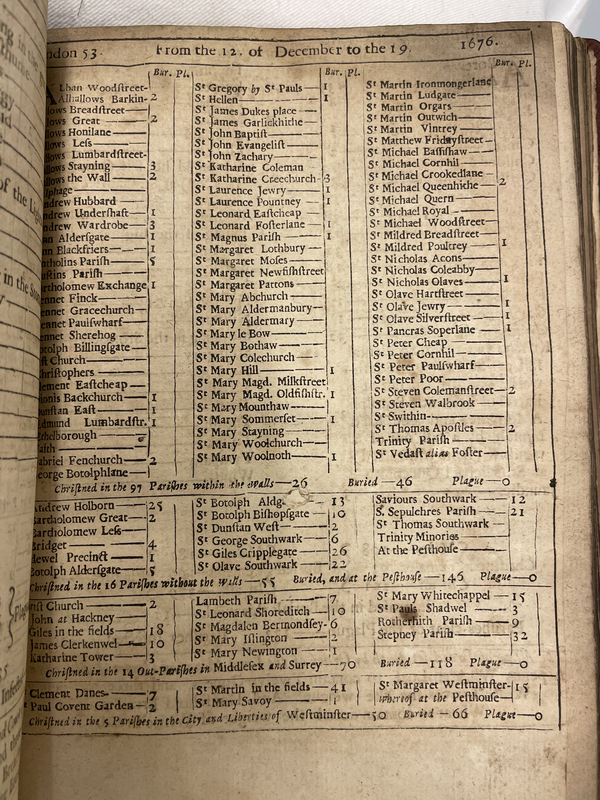 ndon 53. From the 12. of December to the 19. 1676.
Bur. Pl. Bur. Pl. Bur. Pl.
Lhan Woodſtreet-
Alhallows Barkin- 2
lows Breadſtreet—
lows Great —— 2
lows Honilane ——
lows Leſs ——
lows Lumbardſtreet-
llows Stayning —— 3
llows the Wall —— 2
lphage ——
ndrew Hubbard ——
ndrew Underſhaft— 1
ndrew Wardrobe — 3
nn Alderſgate —— 1
nn Blackfriers —— 1
tcholins Pariſh —— 5
uſtins Pariſh ——
artholomew Exchange 1
ennet Finck ——
ennet Gracechurch—
ennet Paulſwharf—
ennet Sherehog ——
otolph Billingſgate—
ſt Church ——
hriſtophers ——
lement Eaſtcheap —
ionis Backchurch — 1
unſtan Eaſt —— 1
dmund Lumbardſtr. 1
thelborough ——
aith ——
abriel Fenchurch — 2
eorge Botolphlane—
Sᵗ Gregory by Sᵗ Pauls — 1
Sᵗ Hellen —— 1
Sᵗ James Dukes place —
Sᵗ James Garlickhithe —
Sᵗ John Baptiſt ——
Sᵗ John Evangeliſt —
Sᵗ John Zachary ——
Sᵗ Katharine Coleman
Sᵗ Katharine Creechurch- 3
Sᵗ Laurence Jewry — 1
Sᵗ Laurence Pountney — 1
Sᵗ Leonard Eaſtcheap —
Sᵗ Leonard Foſterlane — 1
Sᵗ Magnus Pariſh —— 1
Sᵗ Margaret Lothbury —
Sᵗ Margaret Moſes ——
Sᵗ Margaret Newfiſhſtreet
Sᵗ Margaret Pattons —
Sᵗ Mary Abchurch ——
Sᵗ Mary Aldermanbury—
Sᵗ Mary Aldermary —
Sᵗ Mary le Bow ——
Sᵗ Mary Bothaw ——
Sᵗ Mary Colechurch —
Sᵗ Mary Hill —— 1
Sᵗ Mary Magd. Milkſtreet
Sᵗ Mary Magd. Oldfiſhſtr. 1
Sᵗ Mary Mounthaw ——
Sᵗ Mary Somerſet —— 1
Sᵗ Mary Stayning ——
Sᵗ Mary Woolchurch —
Sᵗ Mary Woolnoth —— 1
Sᵗ Martin Ironmongerlane
Sᵗ Martin Ludgate ——
Sᵗ Martin Orgars ——
Sᵗ Martin Outwich ——
Sᵗ Martin Vintrey ——
Sᵗ Matthew Fridayſtreet—
Sᵗ Michael Baſſiſhaw —
Sᵗ Michael Cornhil ——
Sᵗ Michael Crookedlane —
Sᵗ Michael Queenhithe — 2
Sᵗ Michael Quern ——
Sᵗ Michael Royal ——
Sᵗ Michael Woodſtreet—
Sᵗ Mildred Breadſtreet—
Sᵗ Mildred Poultrey — 1
Sᵗ Nicholas Acons ——
Sᵗ Nicholas Coleabby —
Sᵗ Nicholas Olaves — 1
Sᵗ Olave Hartſtreet —
Sᵗ Olave Jewry —— 1
Sᵗ Olave Silverſtreet — 1
Sᵗ Pancras Soperlane — 1
Sᵗ Peter Cheap ——
Sᵗ Peter Cornhil ——
Sᵗ Peter Paulſwharf —
Sᵗ Peter Poor ——
Sᵗ Steven Colemanſtreet— 2
Sᵗ Steven Walbrook —
Sᵗ Swithin ——
Sᵗ Thomas Apoſtles — 2
Trinity Pariſh ——
Sᵗ Vedaſt alias Foſter—
Chriſtned in the 97 Pariſhes within the Walls—26 Buried —46 Plague—0
Andrew Holborn —— 25
Bartholomew Great— 2
Bartholomew Leſs—
Bridget —— 4
dewel Precinct —— 1
Botolph Alderſgate— 5
Sᵗ Botolph Aldg. — 13
Sᵗ Botolph Biſhopſgate — 10
Sᵗ Dunſtan Weſt —— 2
Sᵗ George Southwark — 6
Sᵗ Giles Cripplegate — 26
Sᵗ Olave Southwark — 22
Saviours Southwark — 12
S. Sepulchres Pariſh — 21
Sᵗ Thomas Southwark —
Trinity Minories ——
At the Peſthouſe——
Chriſtned in the 16 Pariſhes without the Walls—55 Buried, and at the Peſthouſe—146 Plague—0
riſt Church —— 2
John at Hackney ——
Giles in the fields — 18
James Clerkenwel — 10
Katharine Tower — 3
Lambeth Pariſh —— 7
Sᵗ Leonard Shoreditch — 10
Sᵗ Magdalen Bermondſey- 6
Sᵗ Mary Iſlington —— 2
Sᵗ Mary Newington — 1
Sᵗ Mary Whitechappel — 15
Sᵗ Pauls Shadwel —— 3
Rotherhith Pariſh —— 9
Stepney Pariſh —— 32
Chriſtned in the 14 Out-Pariſhes in Middleſex and Surrey—70 Buried —118 Plague—0
Clement Danes— 7
Paul Covent Garden— 2
Sᵗ Martin in the fields — 41
Sᵗ Mary Savoy —— 1
Sᵗ Margaret Weſtminſter- 15
whereof at the Peſthouſe—
Chriſtned in the 5 Pariſhes in the City and Liberties of Weſtminſter—50 Buried —66 Plague—0